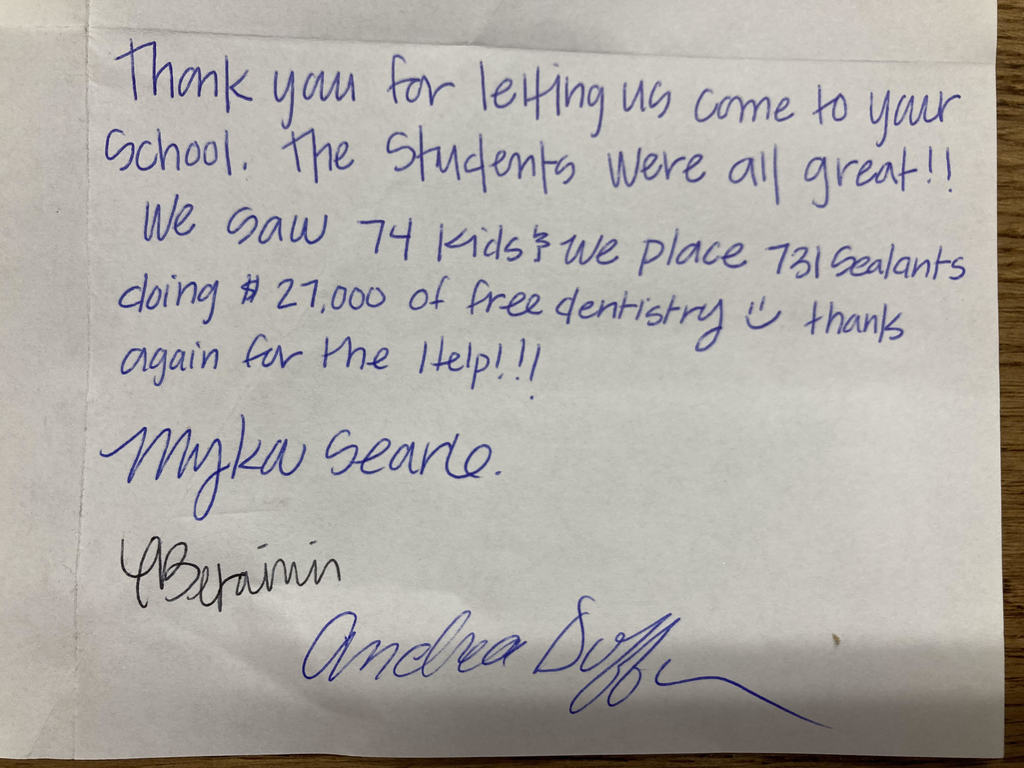 Thank you for letting us come to your
School. The Students were all great!!
We saw 74 kids & we place 731 Sealants
doing $27,000 of free dentistry thanks
again for the Help!!!
Myka Searle.
Andrea